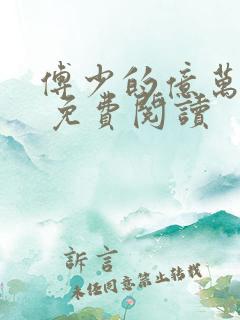 傅少的億萬
免費閱讀
訴言
未经同意禁止转载